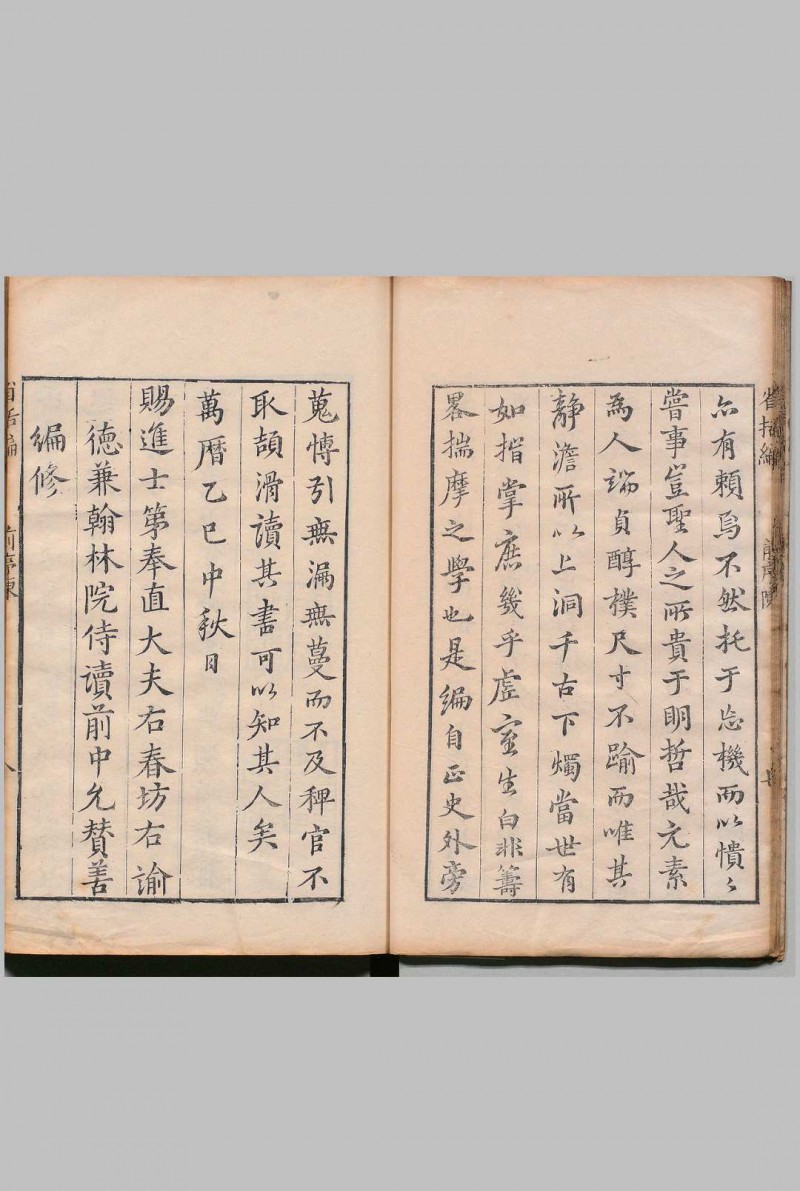 亦有賴焉不然托于忘機而以憒〻
嘗事豈聖人之所貴于明哲哉元素
為人端貞醇樸尺寸不踰而唯其
靜澹所以上洞千古下燭當世有
如指掌庶幾乎虛室生白非籌
畧揣摩之學也是編自正史外旁
蒐博引無漏無蔓而不及稗官不
取頡滑讀其書可以知其人矣
萬曆乙巳中秋日
賜進士第奉直大夫右春坊右諭
德兼翰林院侍讀前中允贊善
編修
省括編
前序陳
八